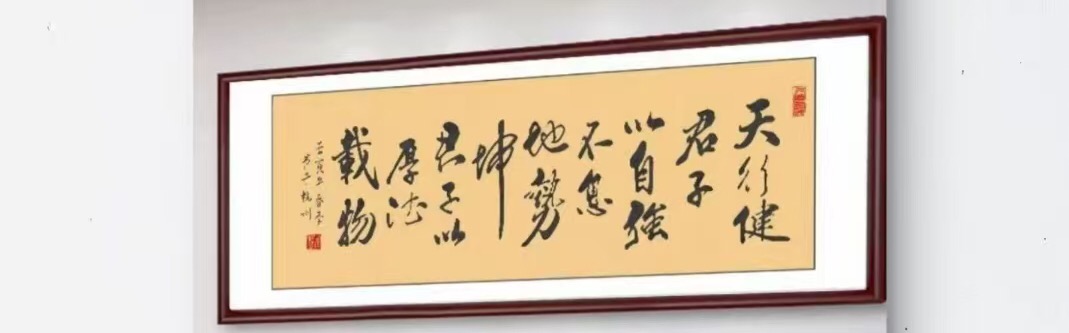 天行健
君子
以自強
不息
地勢
坤
君子以
厚德
載物